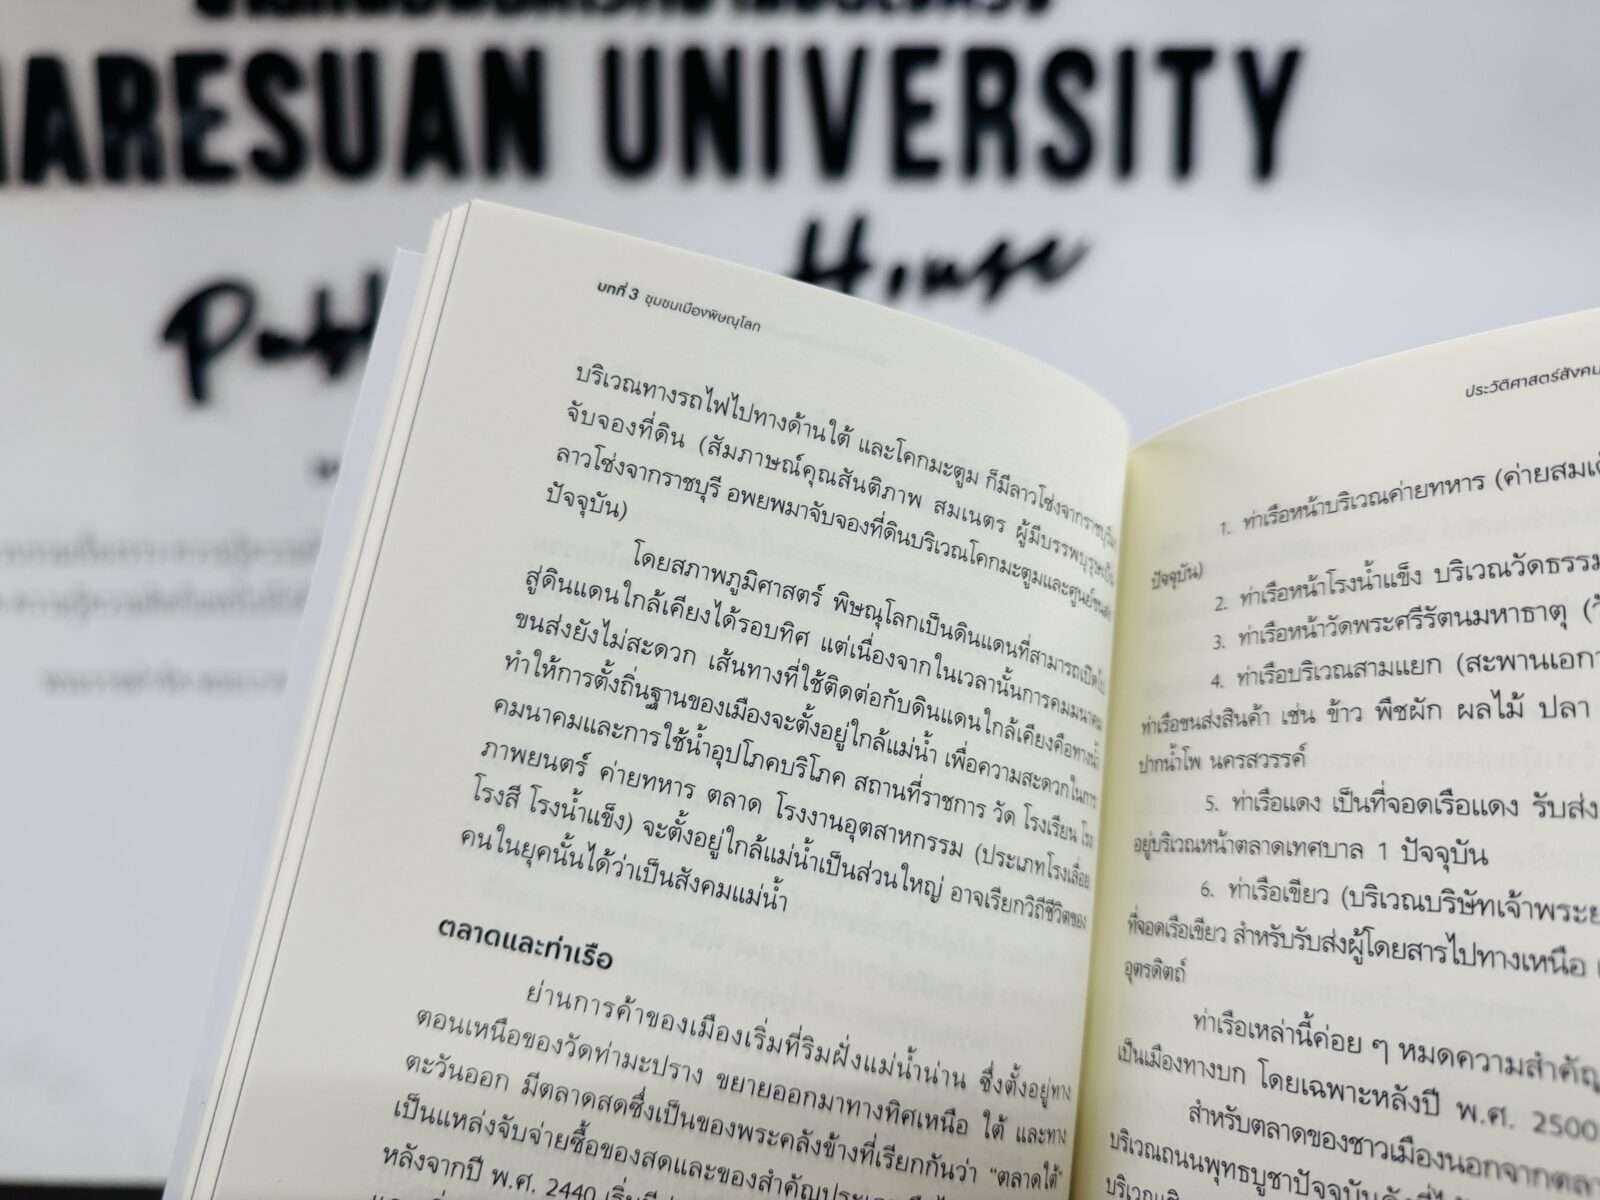 ARESUAN UNIVERSITY
House
บทที่ 3 ชุมชนเมืองพิษณุโลก
บริเวณทางรถไฟไปทางด้านใต้ และโคกมะตูม ก็มีลาวโซ่งจากราชบุรีมา
จับจองที่ดิน (สัมภาษณ์คุณสันติภาพ สมเนตร ผู้มีบรรพบุรุษเป็น
ลาวโซ่งจากราชบุรี อพยพมาจับจองที่ดินบริเวณโคกมะตูมและศูนย์ขนส่ง
ปัจจุบัน)
โดยสภาพภูมิศาสตร์ พิษณุโลกเป็นดินแดนที่สามารถเปิดไป
สู่ดินแดนใกล้เคียงได้รอบทิศ แต่เนื่องจากในเวลานั้นการคมมนาคม
ขนส่งยังไม่สะดวก เส้นทางที่ใช้ติดต่อกับดินแดนใกล้เคียงคือทางน้ำ
ทำให้การตั้งถิ่นฐานของเมืองจะตั้งอยู่ใกล้แม่น้ำ เพื่อความสะดวกในการ
คมนาคมและการใช้น้ำอุปโภคบริโภค สถานที่ราชการ วัด โรงเรียน โรง
ภาพยนตร์ ค่ายทหาร ตลาด โรงงานอุตสาหกรรม (ประเภทโรงเลื่อย
โรงสี โรงน้ำแข็ง) จะตั้งอยู่ใกล้แม่น้ำเป็นส่วนใหญ่ อาจเรียกวิถีชีวิตของ
คนในยุคนั้นได้ว่าเป็นสังคมแม่น้ำ
ตลาดและท่าเรือ
ย่านการค้าของเมืองเริ่มที่ริมฝั่งแม่น้ำน่าน ซึ่งตั้งอยู่ทาง
ตอนเหนือของวัดท่ามะปราง ขยายออกมาทางทิศเหนือ ใต้ และทาง
ตะวันออก มีตลาดสดซึ่งเป็นของพระคลังข้างที่เรียกกันว่า "ตลาดใต้"
เป็นแหล่งจับจ่ายซื้อของสดและของสำคัญประเภท
หลังจากปี พ.ศ. 2440
ประวัติศาสตร์สังคม
1. ท่าเรือหน้าบริเวณค่ายทหาร (ค่ายสมเด็
ปัจจุบัน)
2. ท่าเรือหน้าโรงน้ำแข็ง บริเวณวัดธรรม
3. ท่าเรือหน้าวัดพระศรีรัตนมหาธาตุ (
4. ท่าเรือบริเวณสามแยก (สะพานเอกา
ท่าเรือขนส่งสินค้า เช่น ข้าว พืชผัก ผลไม้ ปลา
ปากน้ำโพ นครสวรรค์
5. ท่าเรือแดง เป็นที่จอดเรือแดง รับส่ง
อยู่บริเวณหน้าตลาดเทศบาล 1 ปัจจุบัน
6. ท่าเรือเขียว (บริเวณบริษัทเจ้าพระย
ที่จอดเรือเขียว สำหรับรับส่งผู้โดยสารไปทางเหนือ
อุตรดิตถ์
ท่าเรือเหล่านี้ค่อย ๆ หมดความสำคัญ
เป็นเมืองทางบก โดยเฉพาะหลังปี พ.ศ. 2500
สำหรับตลาดของชาวเมืองนอกจากตลา
บริเวณถนนพุทธบูชาปัจจุบัน